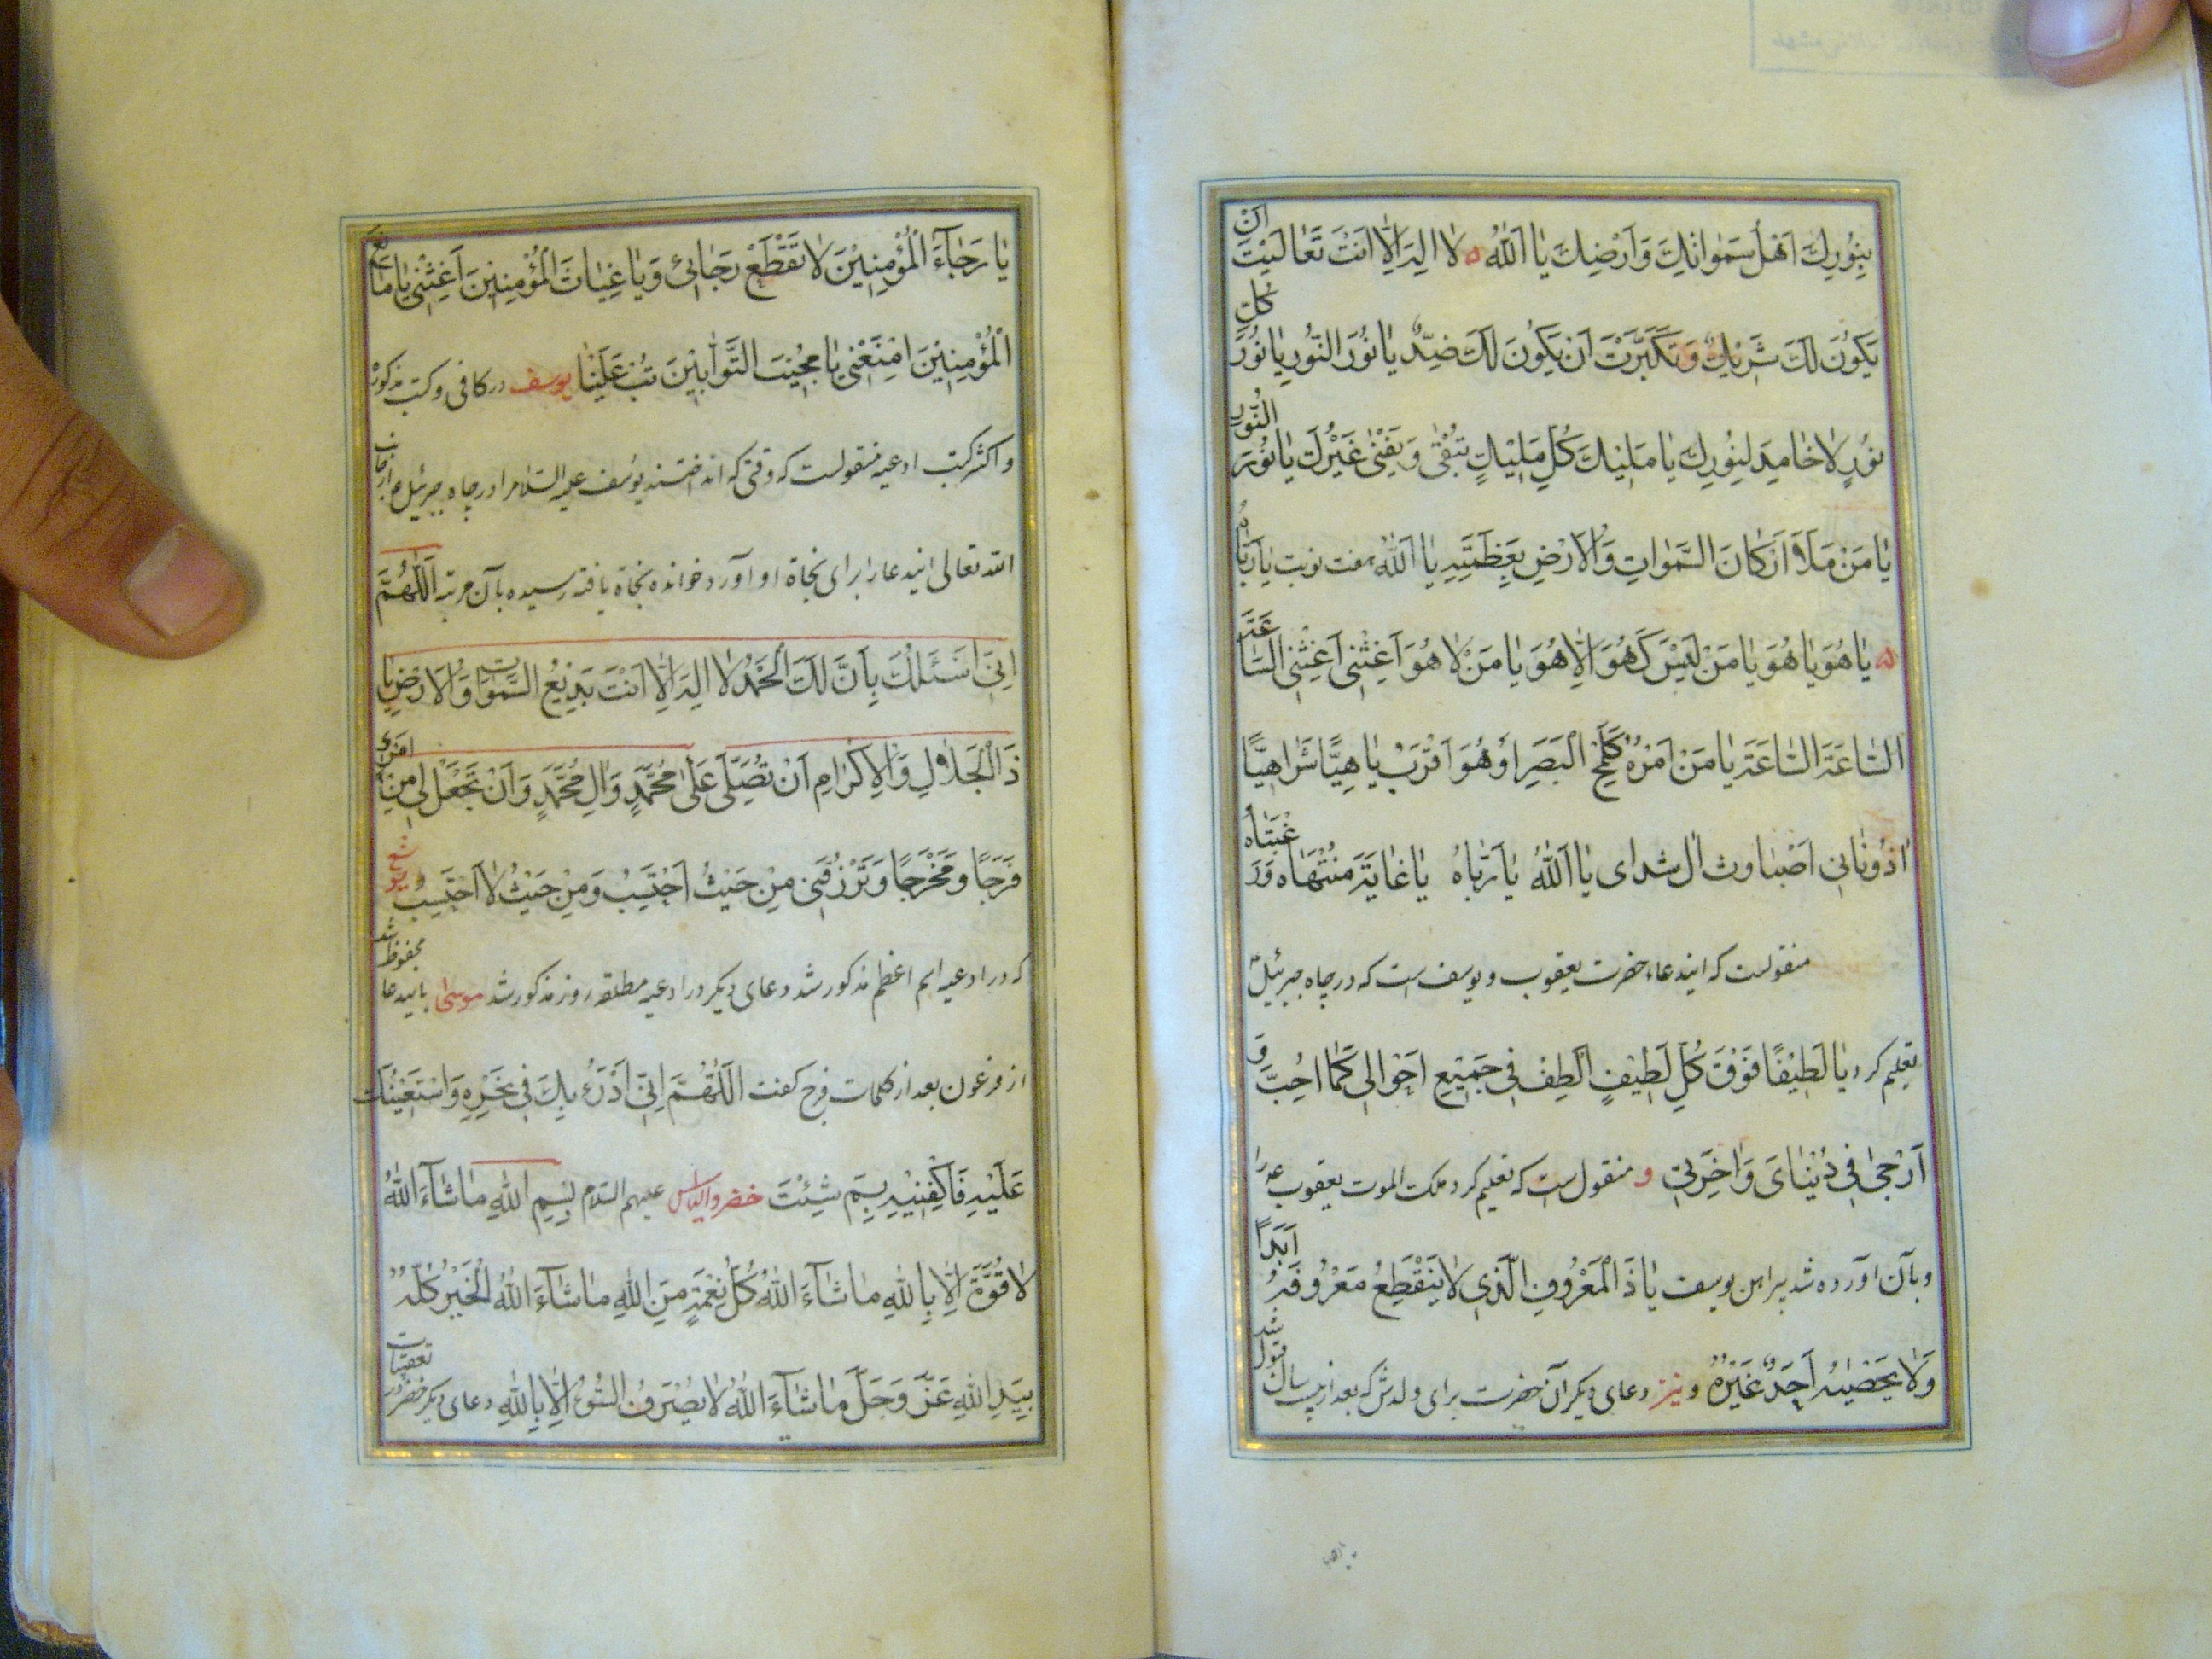 بِنُورِكَ اَهْلُ سَمٰوٰاتِكَ وَاَرْضِكَ يٰا اَللّٰهُ ه لٰا اِلٰهَ اِلّٰا اَنْتَ تَعٰالَيْتَ اَنْ
يَكُونَ لَكَ شَرِيكٌ وَتَكَبَّرْتَ اَنْ يَكُونَ لَكَ ضِدٌّ يٰا نُورَ النُّورِ يٰا نُورَ كُلِّ
نُورٍ لٰا خٰامِدَ لِنُورِكَ يٰا مَلِيكَ كُلِّ مَلِيكٍ تَبْقٰى وَيَفْنٰى غَيْرُكَ يٰا نُورَ النُّورِ
يٰا مَنْ مَلَأَ اَرْكٰانَ السَّمٰوٰاتِ وَالْاَرْضِ بِعَظَمَتِهِ يٰا اَللّٰهُ هفت نوبت يٰا رَبّٰاهُ
ه يٰا هُوَ يٰا هُوَ يٰا مَنْ لَيْسَ كَهُوَ اِلّٰا هُوَ يٰا مَنْ لٰا هُوَ اَغِثْنِي اَغِثْنِي السّٰاعَةَ
السّٰاعَةَ السّٰاعَةَ يٰا مَنْ اَمْرُهُ كَلَمْحِ الْبَصَرِ اَوْ هُوَ اَقْرَبُ يٰا هِيًّا شَرٰاهِيًّا
اذُونٰاىِٕ اَصْبٰاوث ال شداى يٰا اَللّٰهُ يٰا رَبّٰاهُ يٰا غٰايَةَ مُنْتَهٰاهُ وَرَغْبَتٰاهُ
منقولست که ایندعاء حضرت یعقوب و یوسف است که در چاه جبرئیل
تعلیم کرد يٰا لَطِيفًا فَوْقَ كُلِّ لَطِيفٍ اُلْطُفْ فِي جَمِيعِ اَحْوٰالِي كَمٰا اُحِبُّ وَ
اَرْجٰى فِي دُنْيٰاىَ وَاٰخِرَتِي و منقول است که تعلیم کرد ملک الموت یعقوب را
و بآن آورده شد پیراهن یوسف يٰا ذَا الْمَعْرُوفِ الَّذِي لٰا يَنْقَطِعُ مَعْرُوفُهُ اَبَدًا
وَلٰا يُحْصِيهِ اَحَدٌ غَيْرُهُ و نیز دعای دیگر آن حضرت برای ولدش که بعد از بیست سال قبول شد
يٰا رَجٰآءَ الْمُؤْمِنِينَ لٰا تَقْطَعْ رَجٰائِي وَيٰا غِيٰاثَ الْمُؤْمِنِينَ اَغِثْنِي يٰا مٰانِعَ
الْمُؤْمِنِينَ امْنَعْنِي يٰا مُجِيبَ التَّوّٰابِينَ تُبْ عَلَيْنٰا یوسف در کافی و کتب مذکور
و اکثر کتب ادعیه منقولست که وقتی که انداختند یوسف علیه السلام را در چاه جبرئیل ع از جانب
الله تعالی ایندعا را برای نجاة او آورد خوانده نجاة یافته رسیده بآن مرتبه اَللّٰهُمَّ
اِنِّي اَسْئَلُكَ بِاَنَّ لَكَ الْحَمْدُ لٰا اِلٰهَ اِلّٰا اَنْتَ بَدِيعُ السَّمٰوٰاتِ وَالْاَرْضِ يٰا
ذَا الْجَلٰالِ وَالْاِكْرٰامِ اَنْ تُصَلِّيَ عَلٰى مُحَمَّدٍ وَاٰلِ مُحَمَّدٍ وَاَنْ تَجْعَلَ لِي مِنْ اَمْرِي
فَرَجًا وَمَخْرَجًا وَتَرْزُقَنِي مِنْ حَيْثُ اَحْتَسِبُ وَمِنْ حَيْثُ لٰا اَحْتَسِبُ
که در ادعیه اسم اعظم مذکور شد دعای دیگر در ادعیه مطلقه روز مذکور شد موسی بایندعا محفوظ شد
از فرعون بعد از کلمات فرج گفت اَللّٰهُمَّ اِنِّي اَدْرَءُ بِكَ فِي نَحْرِهِ وَاسْتَعِينُكَ
عَلَيْهِ فَاكْفِنِيهِ بِمَ شِئْتَ خضر و الیاس علیهم السلام بِسْمِ اللّٰهِ مٰا شٰآءَ اللّٰهُ
لٰا قُوَّةَ اِلّٰا بِاللّٰهِ مٰا شٰآءَ اللّٰهُ كُلُّ نِعْمَةٍ مِنَ اللّٰهِ مٰا شٰآءَ اللّٰهُ الْخَيْرُ كُلُّهُ
بِيَدِ اللّٰهِ عَزَّ وَجَلَّ مٰا شٰآءَ اللّٰهُ لٰا يَصْرِفُ السُّوءَ اِلّٰا بِاللّٰهِ دعای دیگر خضر در تعقیبات